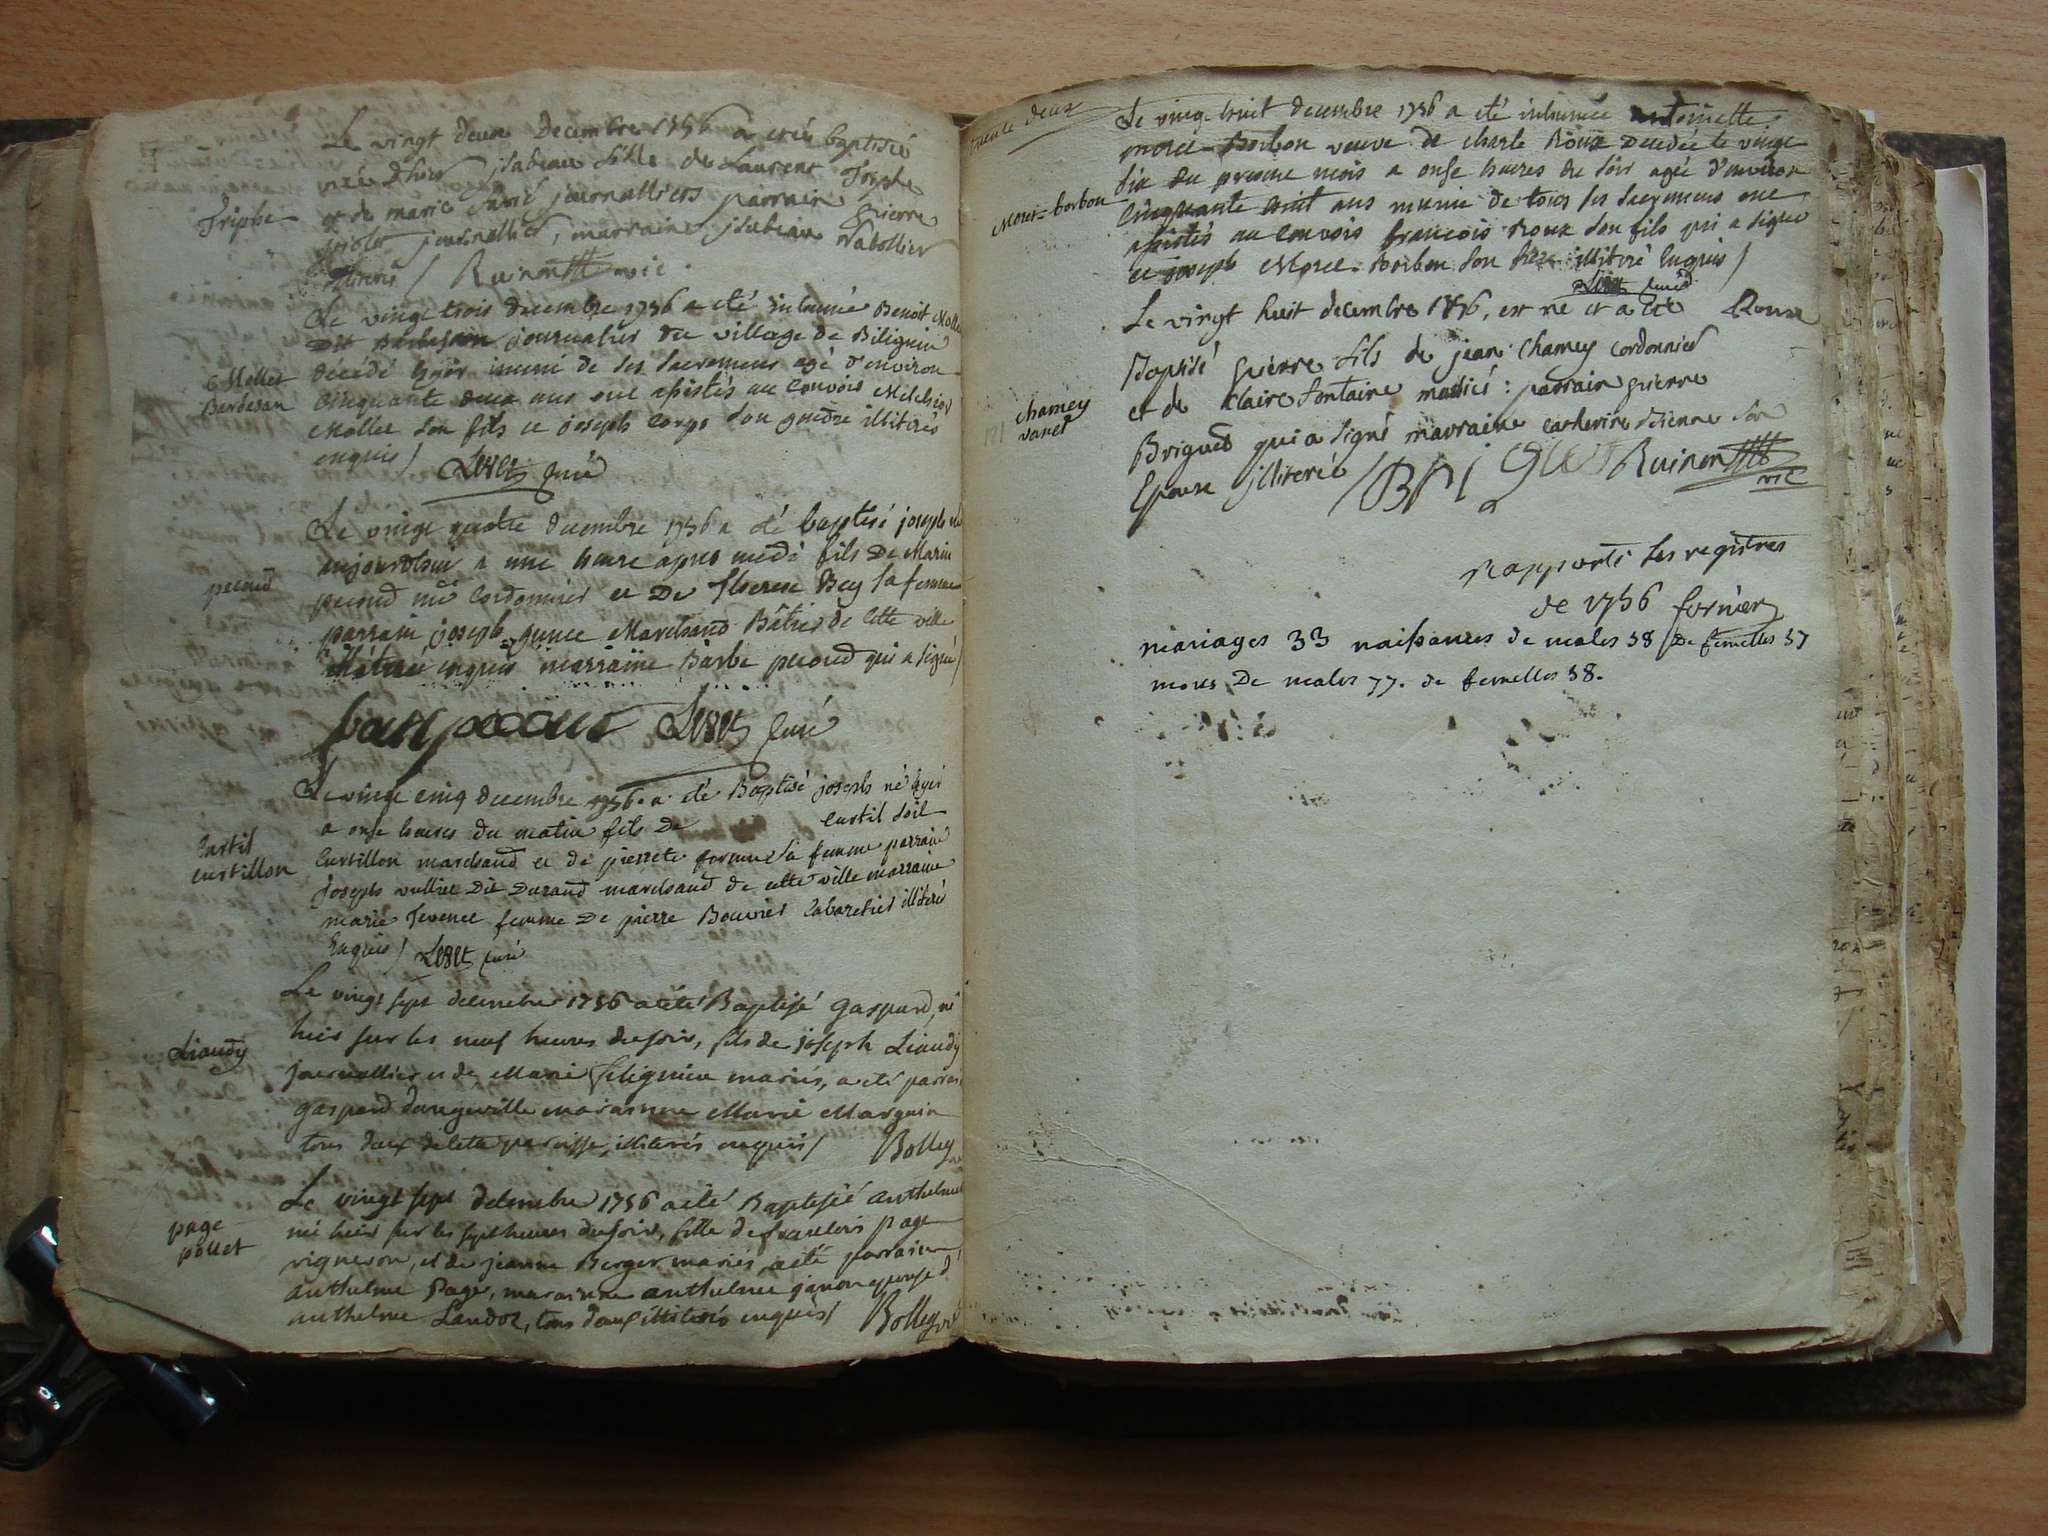 Le vingt deux Decembre 1756 a etée baptisée
née d'hier jsabeau fille de Laurent Triphe
Triphe
et de marie journalliers parrain pierre
journallier, marraine jsabeau
illiterés / Ruinon vic.
Le vingt trois decembre 1756 a eté inhumé Benoit Mollet
Dit Barbesan journalier du village de Biliguin
Mollet
Barbesan
décédé hyer muni de ses sacremens agé d'environ
cinquante deux ans ont assistés au convois Melchior
Mollet son fils et joseph Corps son gendre illiterés
enquis / curé
Le vingt quatre decembre 1756 a eté baptisé joseph né
aujourdhui a une heure après medi fils de Marin
pecoud
pecoud me Cordonnier et De Therese Bey sa femme
parrain joseph gunet Marchand Bâtier de cette ville
illiteré enquis marraine Barbe pecoud qui a signé /
curé
Le vingt cinq decembre 1756 a eté Baptisé joseph né hyer
a onse heures du matin fils de Curtil soit
Curtil
curtillon
Curtillon marchand et de pierrete sa femme parrain
joseph vulliet Dit Durand marchand de cette ville marraine
marie Tevenet femme De pierre Bouvier Cabaretier illiteré
Enquis / curé
Le vingt sept decembre 1756 a été Baptisé Gaspard, né
hier sur les neuf heures du soir, fils de joseph Liaudy
Liaudy
journallier et de Marie mariés, a eté parrain
gaspard dangeville maraine Marie Marguin
tous deux de cete paroisse illiterés enquis / Bolley
Le vingt sept decembre 1756 a été Baptisée anthelmete
née hier sur les sept heures du soir, fille de francois page
page
pollet
vigneron, et de jeanne Berger mariés, a eté parrain
anthelme Page, maraine anthelmete epouse d'
anthelme Landoz, tous deux illiterés enquis / Bolley vic
trente deux
Le vingt huit decembre 1756 a eté inhumée antoinette
morel-Borbon veuve de charle Roux Decedée le vingt
six du presant mois a onse heures du soir agée d'environ
Morel=borbon
cinquante huit ans munie de tous ses sacremens ont
assistés au convois francois Roux son fils qui a signé
et joseph Morel-Borbon son frere illiteré Enquis /
curé
Le vingt huit decembre 1756, est né et a eté Roux
Baptisé pierre fils de jean Chamey cordonnier
chamey
et de Claire fontaine mariés : parrain pierre
Briguet qui a signé marraine catherine son
Epouse jlliterée / Briguet Ruinon
vic
rapporté les registres
de 1756
mariages 33 naissances de males 58 De femelles 57
mors De males 77. de femelles 58.